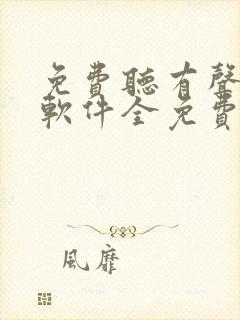 免費聽有聲
軟件全免費
風靡